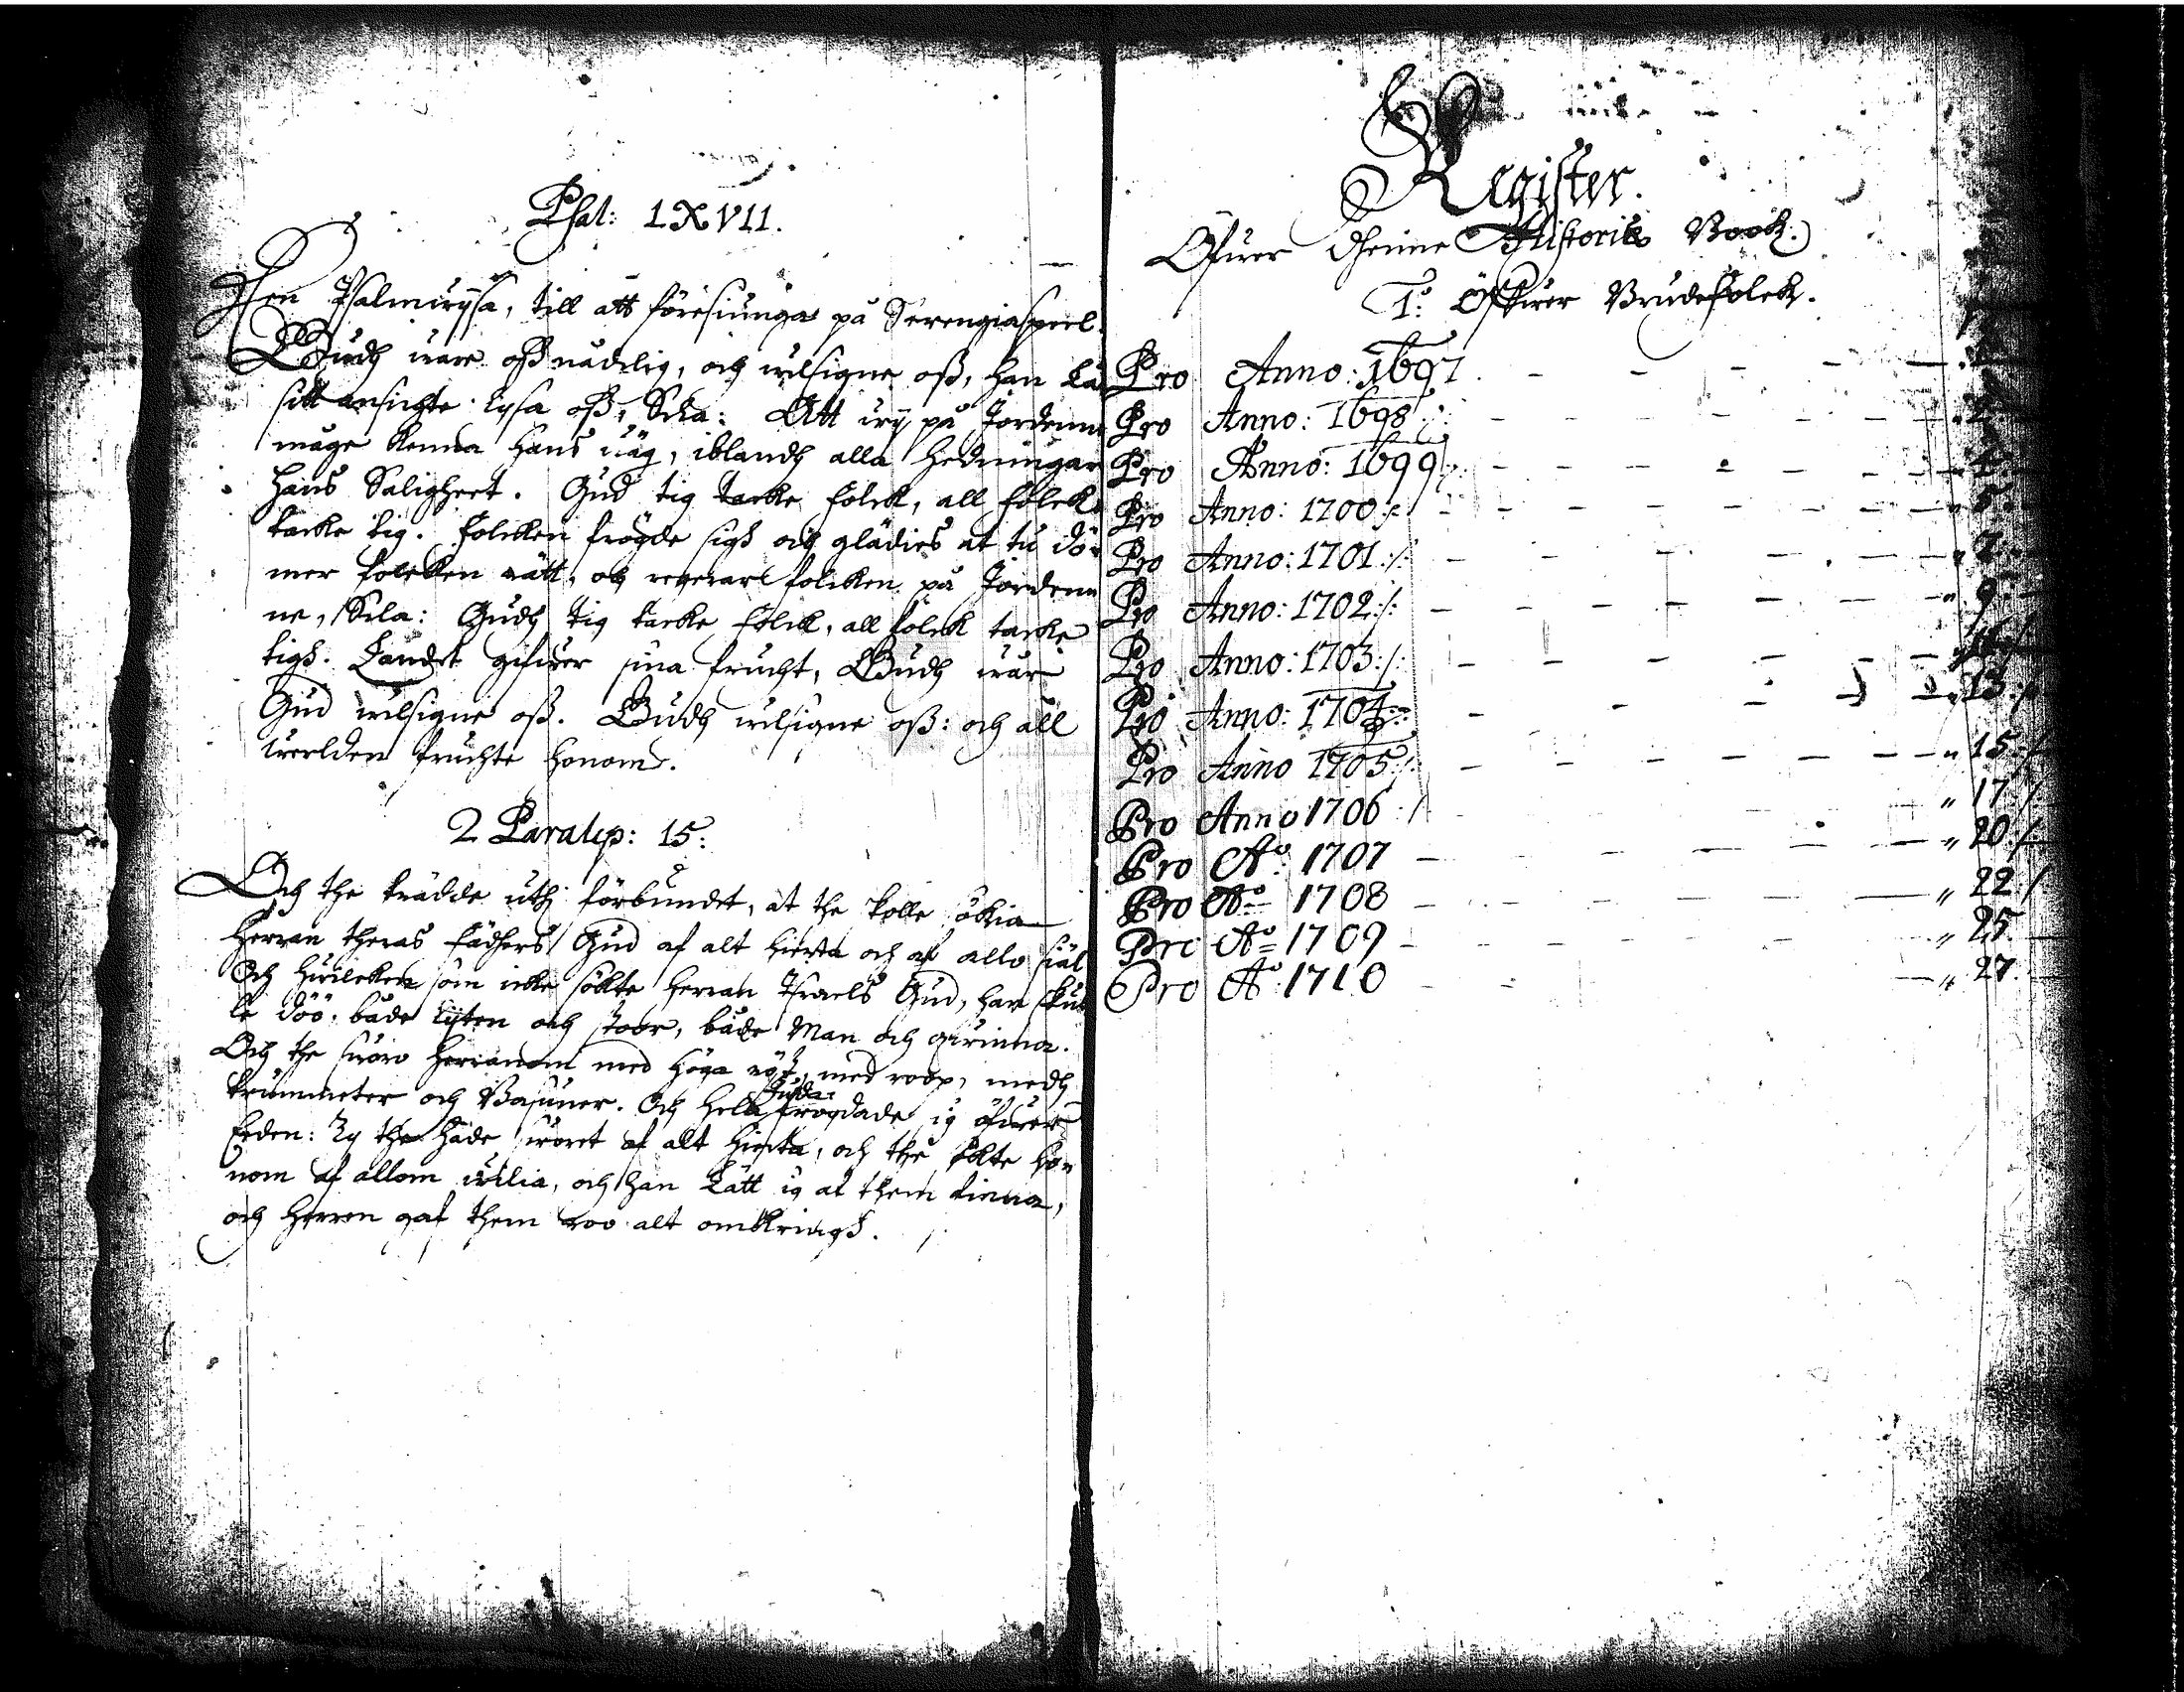 Psal: LXVII.
Een Psalmwysa, till att föresiunga på Strengiaspeel.
Gudh ware oß nådelig, och welsigne oß, han Lå
sitt ansichte lysa oß, Sela: Att wy på Jordenne
måge kenna hans wäg, iblandh alla Hedningar
hans Saligheet. Gud tig tacke folck, all folck
tacke tig. Folcken frögde sigh och glädies at tu dö-
mer folcken rätt, och regerar folcken på Jorden-
ne, Sela: Gudh tig tacke folck, all folck tacke
tigh. Landet gifwer sina frucht, Gudh wår
Gud welsigne oß. Gudh welsigne oß: och all
werlden fruchte honom.
2 Paralip: 15:
Och the trädde uthi förbundet, at the skolle sökia
Herran theras fädhers Gud af alt hierta och af allo siäl
Och hwilcken som icke sökte Herran Israels Gud, han skul
le döö, både lijten och stoor, både Man och qwinna.
Och the sworo Herranom med höga röst, med roop, medh
trummeter och Basuner. Och hela Juda frögdade sig öfwer
Eeden: Ty the hade sworet af alt hierta, och the sökte ho-
nom af allom wilia, och han Lätt sig af them finna,
och Herren gaf them roo alt omkringh.
Register.
Öfwer Thenne Historie Book.
1:o Öfwer Brudefolck.
Pro Anno: 1697. - - - -
Pro Anno: 1698 :/: - - - - 2
Pro Anno: 1699 :/: - - - - 4
Pro Anno: 1700 :/: - - - - " 5.
Pro Anno: 1701 :/: - - - - " 7.
Pro Anno: 1702 :/: - - - - " 9.
Pro Anno: 1703 :/: - - - -
Pro Anno: 1704 :/: - - - - " 13 :/
Pro Anno 1705 :/: - - - - " 15 :/
Pro Anno 1706 :/ - - - - " 17 :/
Pro Ao: 1707 - - - - " 20 :/
Pro Ao 1708 - - - - " 22 :/
Pro Ao 1709 - - - - " 25.
Pro Ao 1710 - - - - " 27.